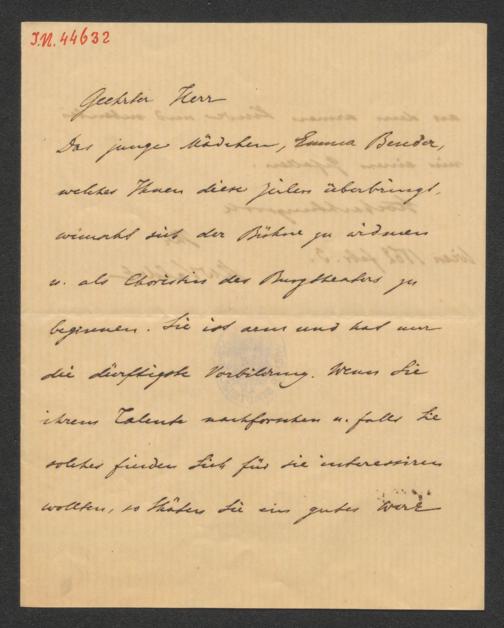 I.N. 44632
Geehrter Herr
Das junge Mädchen, Emma Bender,
welches Ihnen diese Zeilen überbringt,
wünscht sich der Bühne zu widmen
u. als Choristin des Burgtheaters zu
beginnen. Sie ist arm und hat nur
die dürftigste Vorbildung. Wenn Sie
ihrem Talente nachforschen u. falls Sie
solches finden Sich für sie interessiren
wollten, so thäten Sie ein gutes Werk